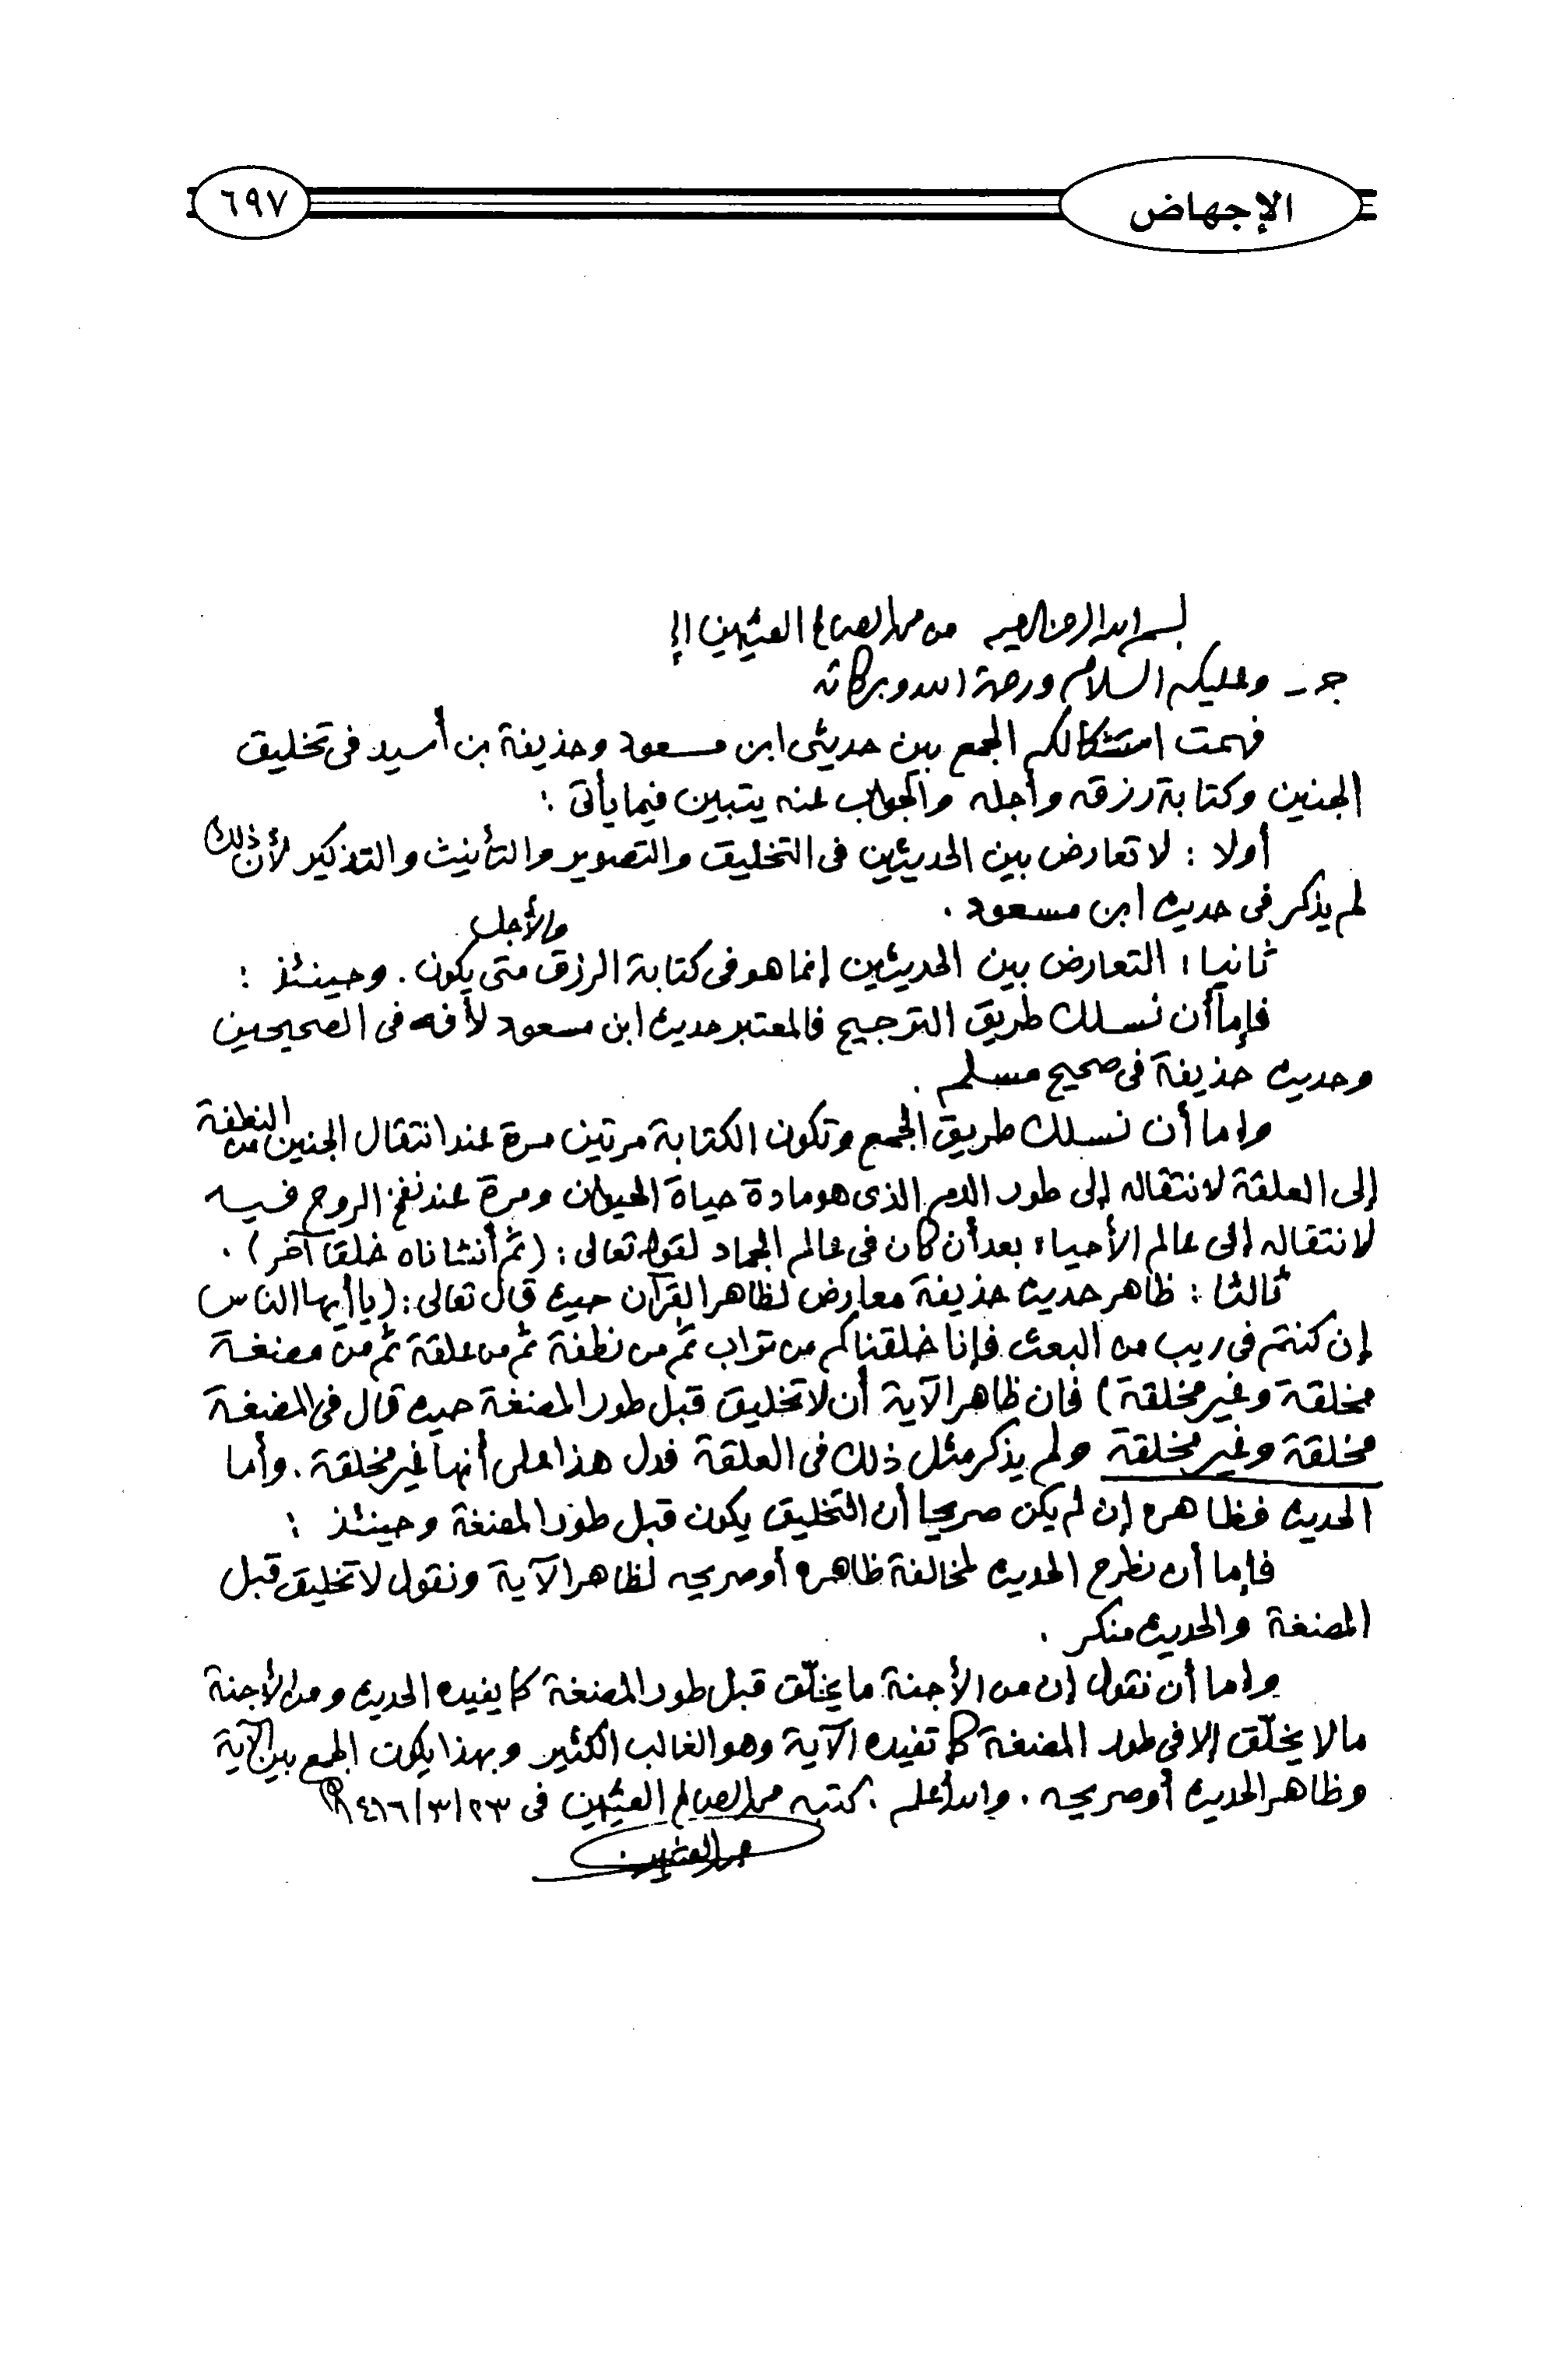 الإجهاض
٦٩٧
بسم الله الرحمن الرحيم من محمد الصالح العثيمين إلى
جـ - وعليكم السلام ورحمة الله وبركاته
فهمت استشكالكم الجمع بين حديثي ابن مسعود وحذيفة بن أسيد في تخليق
الجنين وكتابة رزقه وأجله والجواب عنه يتبين فيما يأتي :
أولا : لا تعارض بين الحديثين في التخليق والتصوير والتأنيث والتذكير لأن ذلك
لم يذكر في حديث ابن مسعود .
ثانيا : التعارض بين الحديثين إنما هو في كتابة الرزق والأجل متى يكون . وحينئذ :
فإما أن نسلك طريق الترجيح فالمعتبر حديث ابن مسعود لأنه في الصحيحين
وحديث حذيفة في صحيح مسلم .
وإما أن نسلك طريق الجمع وتكون الكتابة مرتين مرة عند انتقال الجنين من النطفة
إلى العلقة لانتقاله إلى طور الدم الذي هو مادة حياة الحيوان ومرة عند نفخ الروح فيه
لانتقاله إلى عالم الأحياء بعد أن كان في عالم الجماد لقوله تعالى : (ثم أنشأناه خلقا آخر) .
ثالثا : ظاهر حديث حذيفة معارض لظاهر القرآن حيث قال تعالى : (يا أيها الناس
إن كنتم في ريب من البعث فإنا خلقناكم من تراب ثم من نطفة ثم من علقة ثم من مضغة
مخلقة وغير مخلقة) فإن ظاهر الآية أن لا تخليق قبل طور المضغة حيث قال في المضغة
مخلقة وغير مخلقة ولم يذكر مثل ذلك في العلقة فدل هذا على أنها غير مخلقة . وأما
الحديث فظاهره إن لم يكن صريحا أن التخليق يكون قبل طور المضغة وحينئذ :
فإما أن نطرح الحديث لمخالفة ظاهره أو صريحه لظاهر الآية ونقول لا تخليق قبل
المضغة والحديث منكر .
وإما أن نقول إن من الأجنة ما يخلّق قبل طور المضغة كما يفيده الحديث ومن الأجنة
ما لا يخلّق إلا في طور المضغة كما تفيده الآية وهو الغالب الكثير وبهذا يكون الجمع بين الآية
وظاهر الحديث أو صريحه . والله أعلم . كتبه محمد الصالح العثيمين في ٢٣/٣/١٤١٦هـ
محمد العثيمين